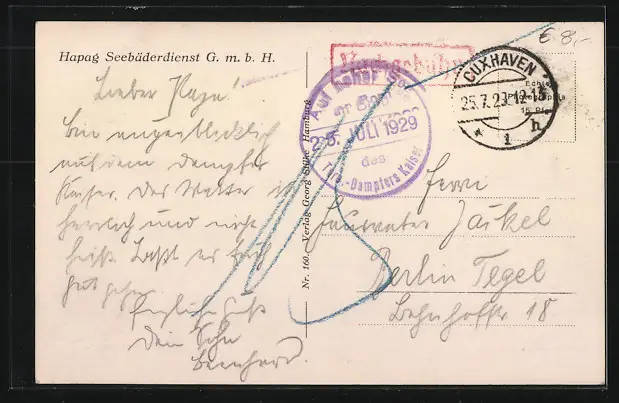 Hapag Seebäderdienst G. m. b. H.
Lieber Papa!
Bin augenblicklich
auf dem Dampfer
Kaiser. Das Wetter ist
herrlich und nicht
heiß. Laßt es Euch
gut gehen.
Herzliche Grüße
Dein Sohn
Bernhard.
Nr. 160. Verlag Georg Stilke Hamburg
Nachgebühr
€ 8,-
CUXHAVEN
25.7.29.12-13
* 1 h
Auf hoher See
an Bord
25. JULI 1929
des
Turb.-Dampfers Kaiser
Echte
Photographie
15 Pf.
Herrn
Jäckel
Berlin Tegel
Bahnhofstr. 18